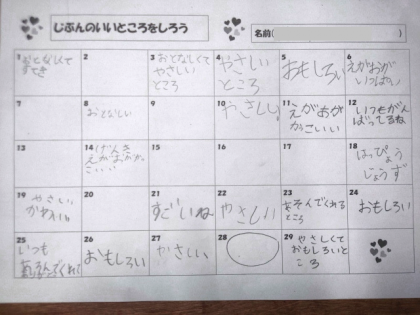 じぶんのいいところをしろう
名前(
1
おとなしくて
すてき
2
3
おとなしくて
やさしい
ところ
4
やさしい
ところ
5
おもしろい
6
えがおが
いっぱい
7
8
おとなしい
9
10
やさしい
11
えがおが
かっこいい
12
いつもがん
ばってるね
13
14
げんき
えがおがか
15
16
17
18
はっぴょう
じょうず
19
やさしい
かわいい
20
21
すごいね
22
やさしい
23
あそんでくれる
ところ
24
おもしろい
25
いつも
あそんでくれて
26
おもしろい
27
やさしい
28
29
やさしくて
おもしろいと
ころ